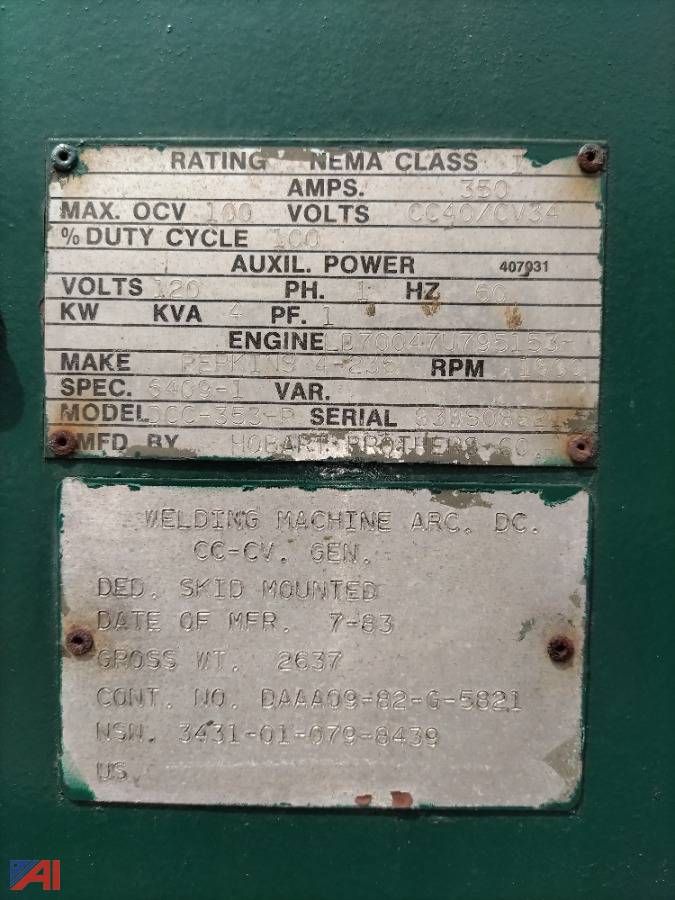 RATING NEMA CLASS I
AMPS. 350
MAX. OCV 100 VOLTS CC40/CV34
% DUTY CYCLE 100
AUXIL. POWER 407931
VOLTS 120 PH. 1 HZ 60
KW KVA 4 PF. 1
ENGINE
MAKE PERKINS 4-236 RPM
SPEC. 6409-1 VAR.
MODEL DCC-353-P SERIAL
MFD BY HOBART BROTHERS CO.
WELDING MACHINE ARC. DC.
CC-CV. GEN.
DED. SKID MOUNTED
DATE OF MFR. 7-83
GROSS WT. 2637
CONT. NO. DAAA09-82-G-5821
NSN. 3431-01-079-8439
US.
AI